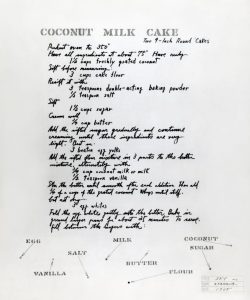 COCONUT MILK CAKE
Two 9-Inch Round Cakes
Preheat oven to 350°
Have all ingredients at about 75° Have ready
1½ cups freshly grated coconut
Sift before measuring
3 cups cake flour
Resift it with
3 teaspoons double-acting baking powder
½ teaspoon salt
Sift
1½ cups sugar
Cream well
¾ cup butter
Add the sifted sugar gradually and continue
creaming until these ingredients are very
light. Beat in
3 beaten egg yolks
Add the sifted flour mixture in 3 parts to the butter
mixture, alternately with
¾ cup coconut milk or milk
½ teaspoon vanilla
Stir the batter until smooth after each addition. Then add
¾ cup of the grated coconut. Whip until stiff
but not dry
egg whites
Fold the egg whites gently into the batter. Bake in
greased layer pans for about minutes. To serve,
fill between the layers with:
EGG
MILK
COCONUT
SUGAR
SALT
VANILLA
BUTTER
FLOUR